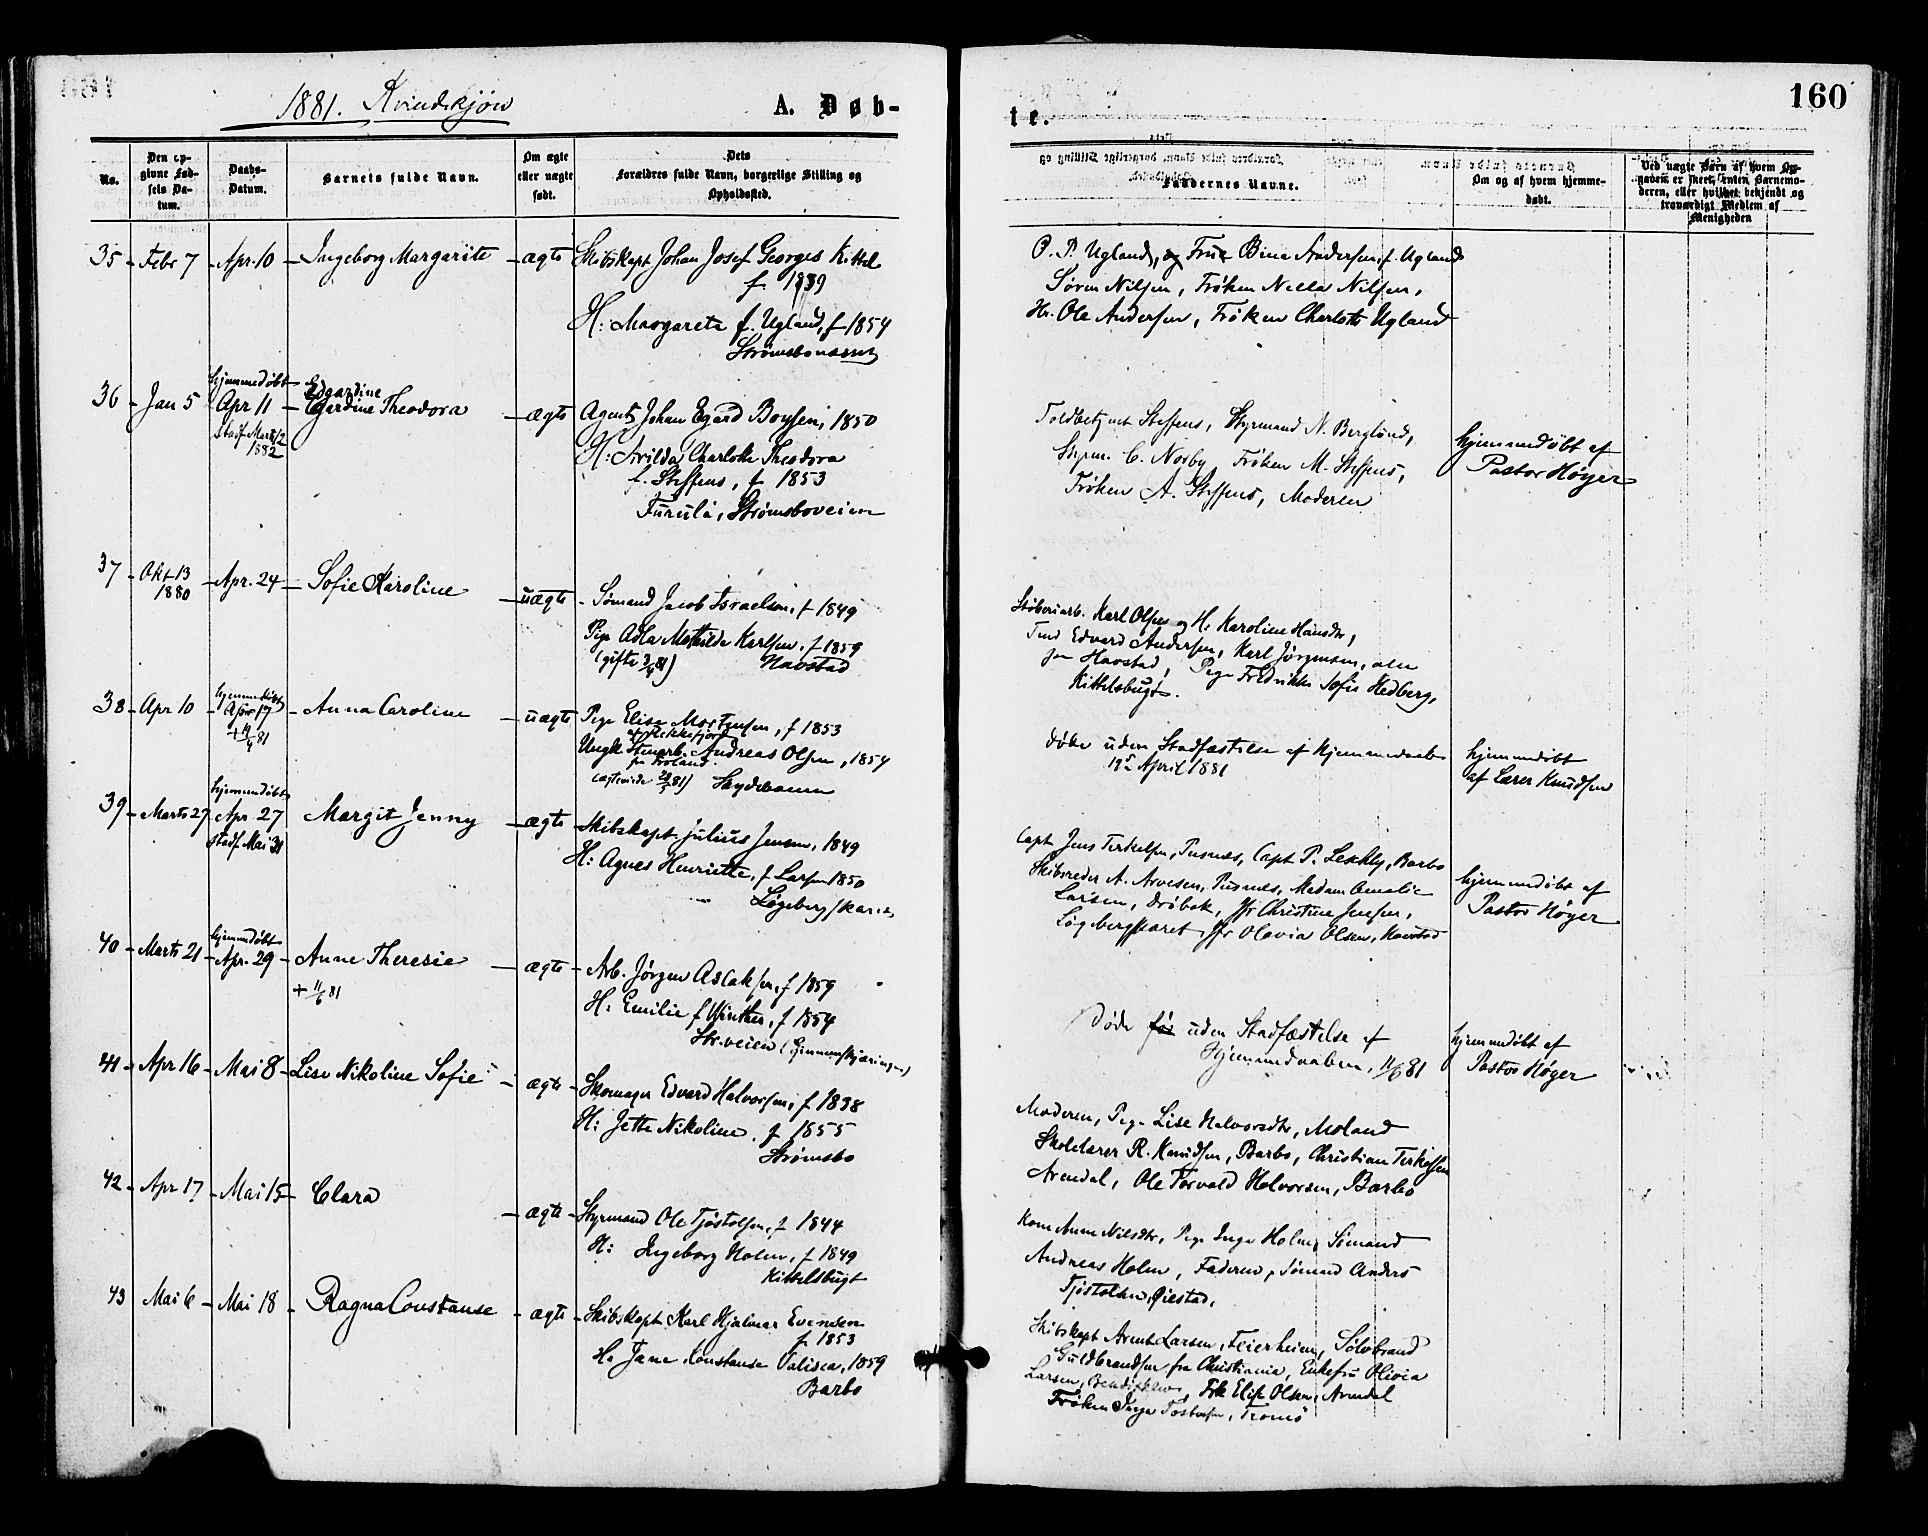 1881. Kvindekjøn
A. Døb-
te.
160
No.
Den op-
givne Fød-
sels Da-
tum.
Daabs-
Datum.
Barnets fulde Navn.
Om ægte
eller uægte
født.
Dets
Forældres fulde Navn, borgerlige Stilling og
Opholdssted.
Faddernes Navne.
Om og af hvem hjemme-
døbt.
Ved uægte Børn af hvem Op-
gaven er skeet, enten Barnemo-
deren, eller hvilket bekjendt og
troværdigt Medlem af
Menigheden
35 Febr 7 Apr. 10 Ingeborg Margarite ægte Skibskapt Johan Josef Georges Kittel
f. 1839
H: Margarete f. Ugland, f 1854
Strømsbonesset
O. P. Ugland, og Frue Bina Andersen, f. Ugland
Søren Nilsen, Frøken Nella Nilsen,
Hr. Ole Andersen, Frøken Charlotte Ugland
36 Jan 5 hjemmedøbt
Apr 11
Stadf. Marts 12
1882
Edgardine
Egardine Theodora ægte Agent Johan Egard Boysen, 1850
H: Arilda Charlotte Theodora
f. Steffens, f 1853
Furuli, Strømsboveien
Toldbetjent Steffens, Styrmand N. Berglund,
Styrm. C. Nosby, Frøken M. Steffens,
Frøken A. Steffens, Moderen
hjemmedøbt af
Pastor Høyer
37 Okt 13
1880
Apr. 24 Sofie Karoline uægte Sømand Jacob Israelsen, f 1849
Pige Adla Mathilde Karlsen, f 1859
(gifte 3/4 81) Havstad
Støberiarb. Karl Olsen og H: Karoline Hansdtr,
Tmd Edvard Andersen, Karl Jørgensen, alle
fra Havstad, Pige Fredrikke Sofie Hedberg,
Kittelsbugt.
38 Apr 10 hjemmedøbt
Apr 17
+ 19/4 81
Anna Caroline uægte Pige Elise Mortensen, f 1853
af Rekkefjord
Ungk. Stenarb. Andreas Olsen, 1854
fra Froland.
Skydebanen
døde uden Stadfæstelse af Hjemmedaaben
19de April 1881
hjemmedøbt
af Lærer Knudsen
39 Marts 27 hjemmedøbt
Apr 27
Stadf Mai 31
Margit Jenny ægte Skibskapt. Julius Jensen, 1849
H: Agnes Henriette, f Larsen 1850
Løgebergskaret
Capt Jens Terkelsen, Pusnes, Capt P. Leschly, Barbo
Skibsreder A. Arvesen, Pusnes, Madam Amalie
Larsen, Drøbak, Jfr Christine Jensen,
Løgebergskaret, Jfr Olovia Olsen, Havstad
hjemmedøbt af
Pastor Høyer
40 Marts 21 hjemmedøbt
Apr. 29
Anne Theresie
+ 11/6 81
ægte Arb. Jørgen Aslaksen, f 1859
H: Emilie f Winther, f 1854
Str.veien (Gjennemskjæringen)
Døde før uden Stadfæstelse af
Hjemmedaaben, 11/6 81
hjemmedøbt af
Pastor Høyer
41 Apr 16 Mai 8 Lise Nikoline Sofie ægte Skomager Edvard Halvorsen, f 1838
H: Jette Nikoline, f 1855
Strømsbo
Moderen, Pige Lise Halvorsdtr, Moland
Skolelærer R. Knudsen, Barbo, Christian Terkelsen
Arendal, Ole Torvald Halvorsen, Barbo
42 Apr 17 Mai 15 Clara ægte Styrmand Ole Tjøstolsen, f 1844
H: Ingeborg Holm, f 1849
Kittelsbugt
Kone Anne Nilsdtr, Pige Inga Holm, Sømand
Andreas Holm, Faderen, Sømand Anders
Tjøstolsen, Gjestad.
43 Mai 6 Mai 18 Ragna Constanse ægte Skibskapt Karl Hjalmar Evensen
f 1853
H: Jane Konstanse Valisea, 1859
Barbo
Skibskapt Arent Larsen, Feierheien, Sølvbrand
Guldbrandsen fra Christiania, Enkefru Olivia
Larsen, Frk Elise Olsen, Arendal
Frøken Inga Tostensen, Tromø